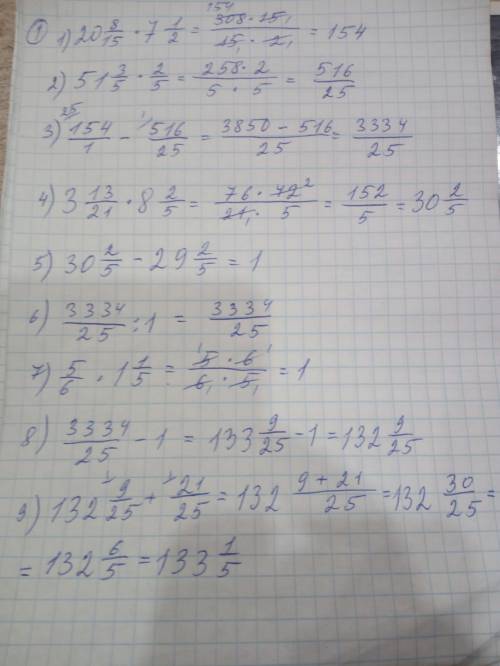 ① 1) 20 8/15 · 7 1/2 = 308 · 15 / 15 · 2 = 154
2) 51 3/5 · 2/5 = 258 · 2 / 5 · 5 = 516/25
3) 154/1 - 516/25 = 3850 - 516 / 25 = 3334/25
4) 3 13/21 · 8 2/5 = 76 · 42 / 21 · 5 = 152/5 = 30 2/5
5) 30 2/5 - 29 2/5 = 1
6) 3334/25 : 1 = 3334/25
7) 5/6 · 1 1/5 = 5 · 6 / 6 · 5 = 1
8) 3334/25 - 1 = 133 9/25 - 1 = 132 9/25
9) 132 9/25 + 21/25 = 132 9 + 21 / 25 = 132 30/25 =
= 132 6/5 = 133 1/5